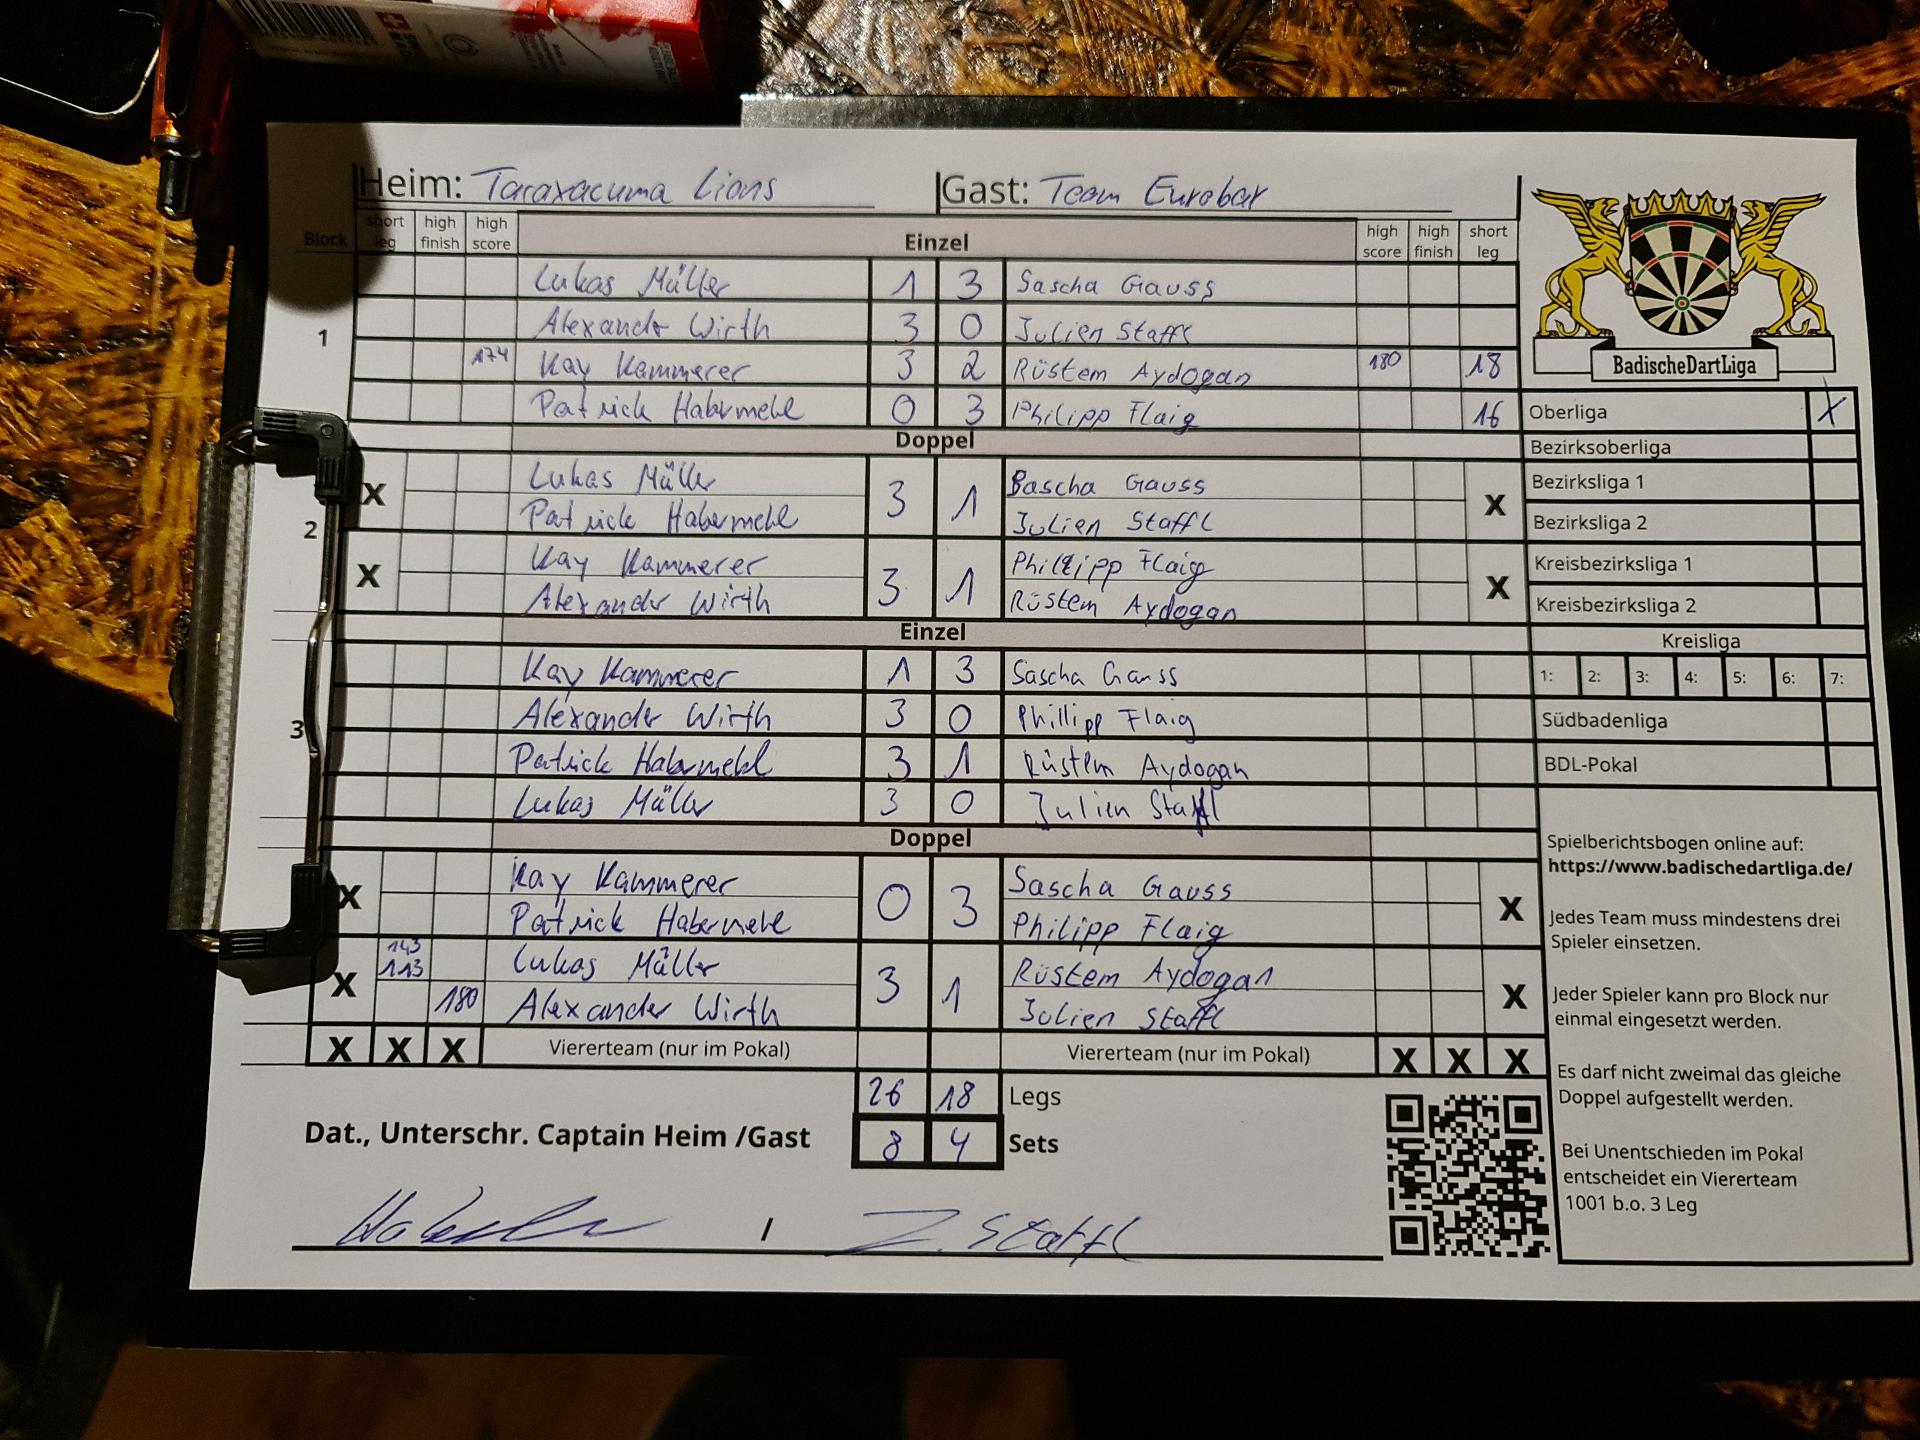 Heim: Taraxacuma Lions Gast: Team Eurobar
Block short leg high finish high score Einzel high score high finish short leg
Lukas Müller 1 3 Sascha Gauss
Alexander Wirth 3 0 Julien Staffl
1
174 Kay Kammerer 3 2 Rüstem Aydogan 180 18
Patrick Habermehl 0 3 Philipp Flaig 16
Doppel
X Lukas Müller 3 1 Sascha Gauss X
Patrick Habermehl Julien Staffl
2
X Kay Kammerer 3 1 Phillipp Flaig X
Alexander Wirth Rüstem Aydogan
Einzel
Kay Kammerer 1 3 Sascha Gauss
Alexander Wirth 3 0 Phillipp Flaig
3
Patrick Habermehl 3 1 Rüstem Aydogan
Lukas Müller 3 0 Julien Staffl
Doppel
X Kay Kammerer 0 3 Sascha Gauss X
Patrick Habermehl Philipp Flaig
143
X 113 Lukas Müller 3 1 Rüstem Aydogan X
180 Alexander Wirth Julien Staffl
X X X Viererteam (nur im Pokal) Viererteam (nur im Pokal) X X X
26 18 Legs
Dat., Unterschr. Captain Heim /Gast 8 4 Sets
/ J. Staffl
BadischeDartLiga
Oberliga X
Bezirksoberliga
Bezirksliga 1
Bezirksliga 2
Kreisbezirksliga 1
Kreisbezirksliga 2
Kreisliga
1: 2: 3: 4: 5: 6: 7:
Südbadenliga
BDL-Pokal
Spielberichtsbogen online auf:
https://www.badischedartliga.de/
Jedes Team muss mindestens drei
Spieler einsetzen.
Jeder Spieler kann pro Block nur
einmal eingesetzt werden.
Es darf nicht zweimal das gleiche
Doppel aufgestellt werden.
Bei Unentschieden im Pokal
entscheidet ein Viererteam
1001 b.o. 3 Leg